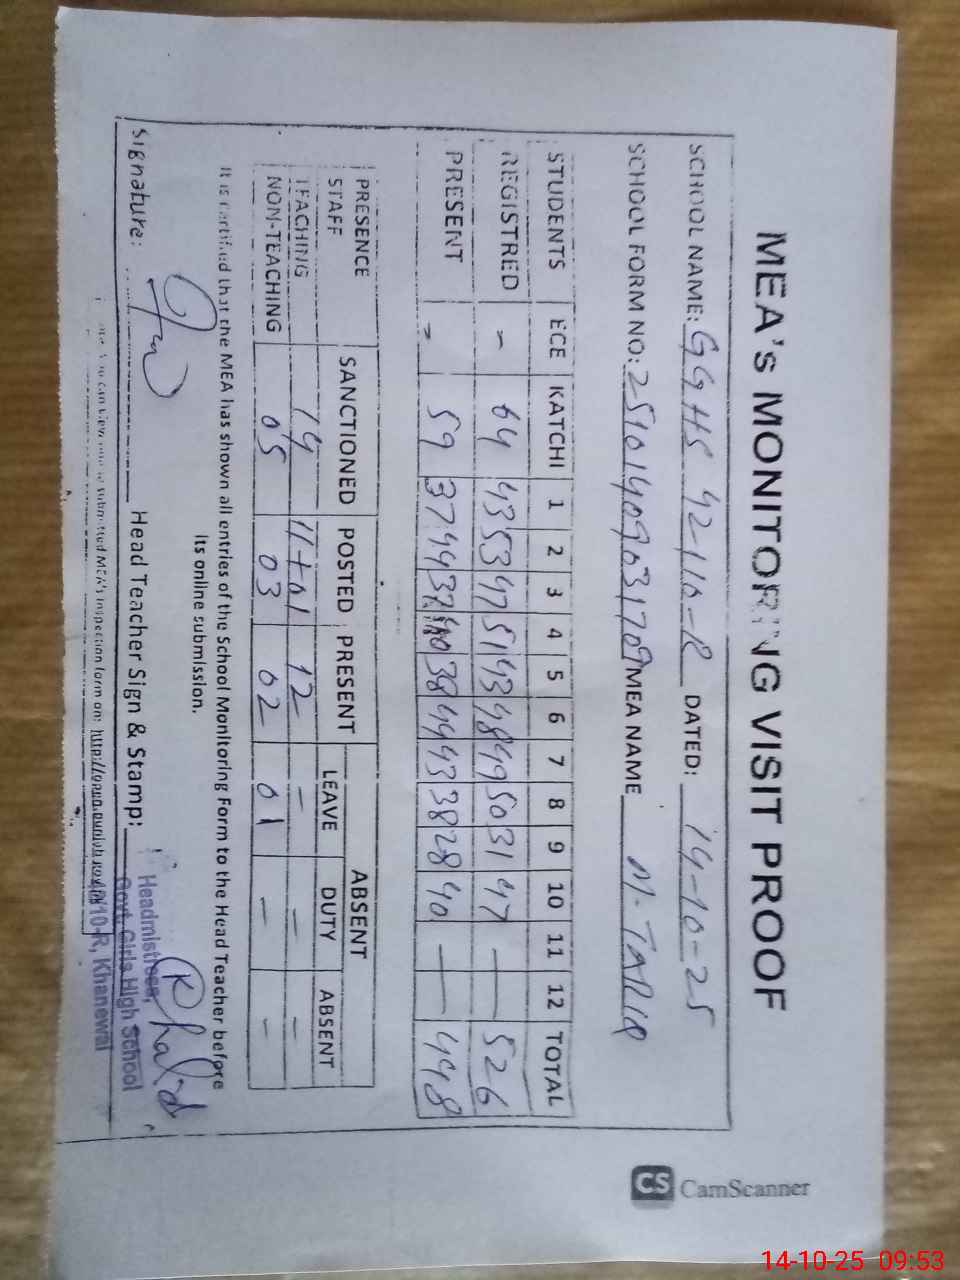 MEA's MONITORING VISIT PROOF
SCHOOL NAME: GGHS 42-110-R DATED: 14-10-25
SCHOOL FORM NO: MEA NAME M. TAHIR
STUDENTS ECE KATCHI 1 2 3 4 5 6 7 8 9 10 11 12 TOTAL
REGISTRED - 64 43 53 47 51 43 48 49 50 31 47 — — 526
PRESENT - 59 37 44 37 40 38 44 43 38 28 40 — — 448
PRESENCE STAFF SANCTIONED POSTED PRESENT ABSENT
LEAVE DUTY ABSENT
TEACHING 14 11+01 12 - - -
NON-TEACHING 05 03 02 01 - -
It is certified that the MEA has shown all entries of the School Monitoring Form to the Head Teacher before
its online submission.
Signature: Head Teacher Sign & Stamp: Khalid
Headmistress,
Govt. Girls High School
10-R, Khanewal
submitted MEA's inspection form on:
CS CamScanner
14-10-25 09:53